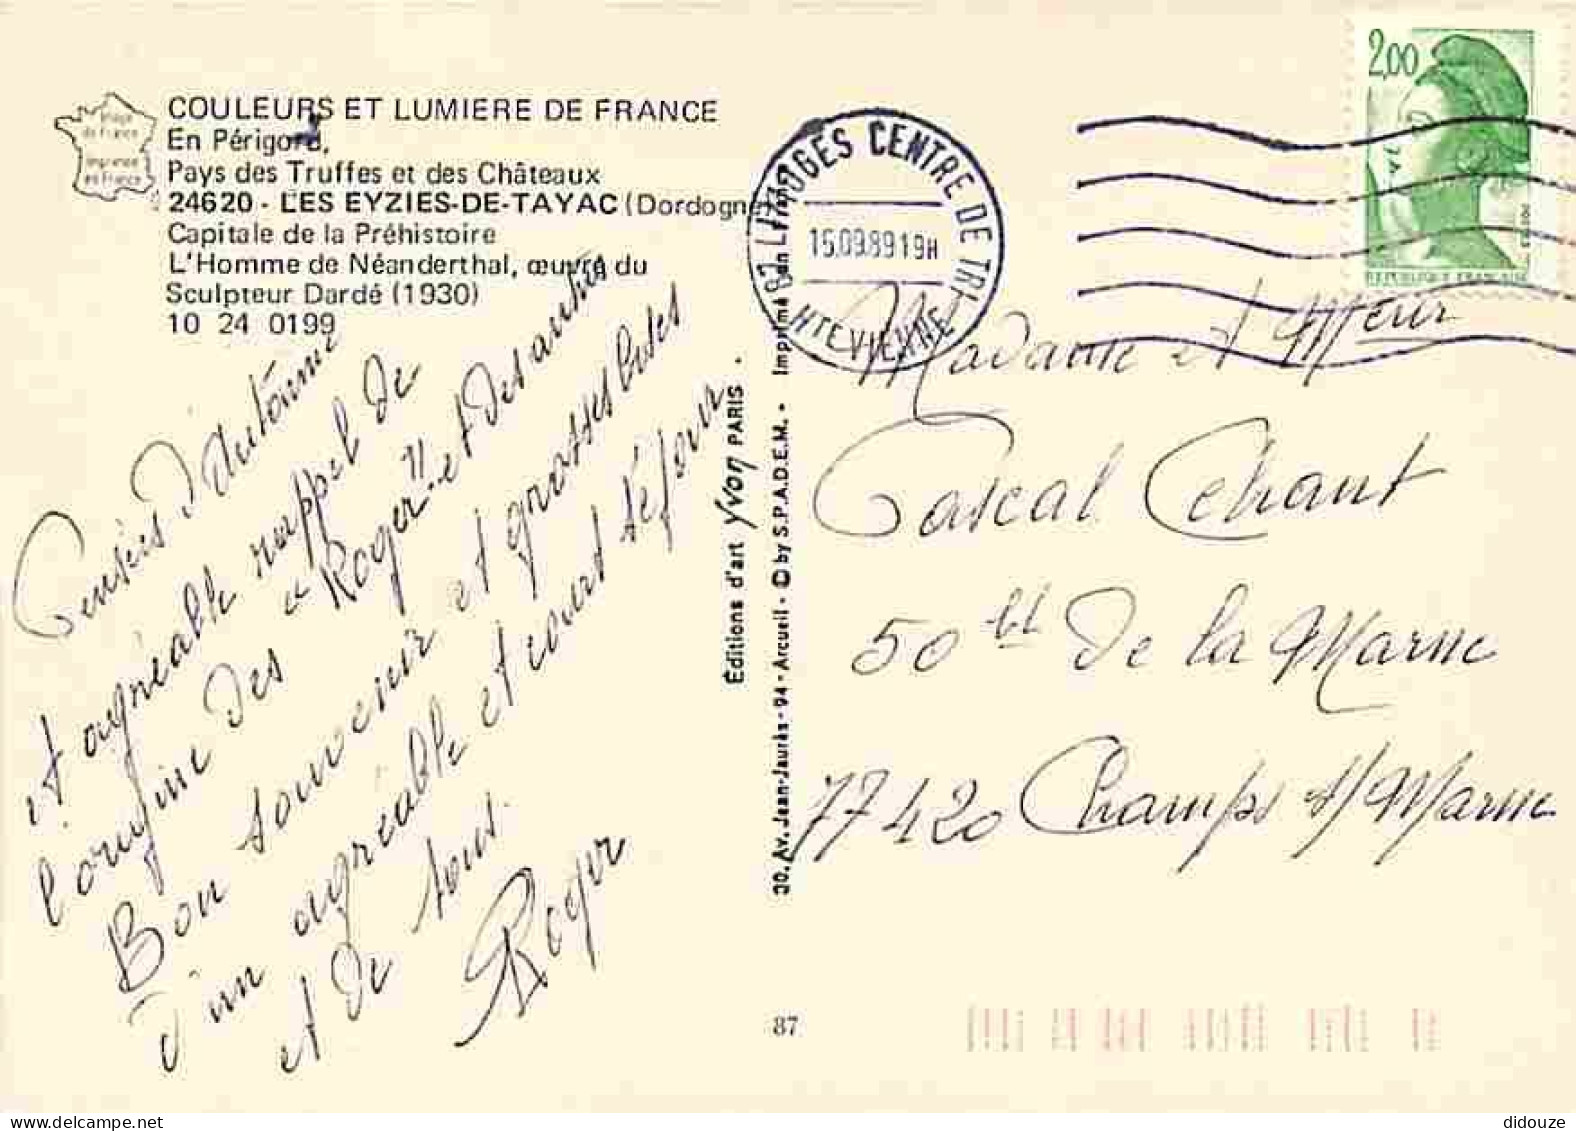 Image
de France
Imprimé
en France
COULEURS ET LUMIERE DE FRANCE
En Périgord,
Pays des Truffes et des Châteaux
24620 - LES EYZIES-DE-TAYAC (Dordogne)
Capitale de la Préhistoire
L'Homme de Néanderthal, œuvre du
Sculpteur Dardé (1930)
10 24 0199
Pensées d'Automne
et agréable rappel de
l'origine des "Roger" et des autres
Bon souvenir et grosses bises
d'un agréable et court séjour.
et de tous.
Roger
Éditions d'art Yvon PARIS
30, Av. Jean-Jaurès - 94 - Arcueil - © by S.P.A.D.E.M. - Imprimé en France
87 LIMOGES CENTRE DE TRI
15.09.89 19H
HTE VIENNE
2,00
REPUBLIQUE FRANCAISE
Madame et Meur
Pascal Chant
50 bd de la Marne
77420 Champs s/Marne
87
didouze